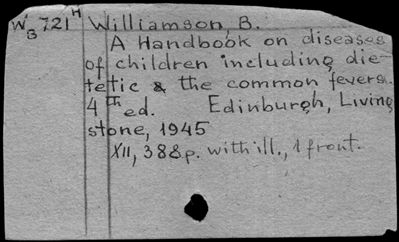 WB 721 H Williamson, B.
A Handbook on diseases
of children including die-
tetic & the common fevers.
4th ed. Edinburgh, Living-
stone, 1945
XII, 388p. with ill., 1 front.